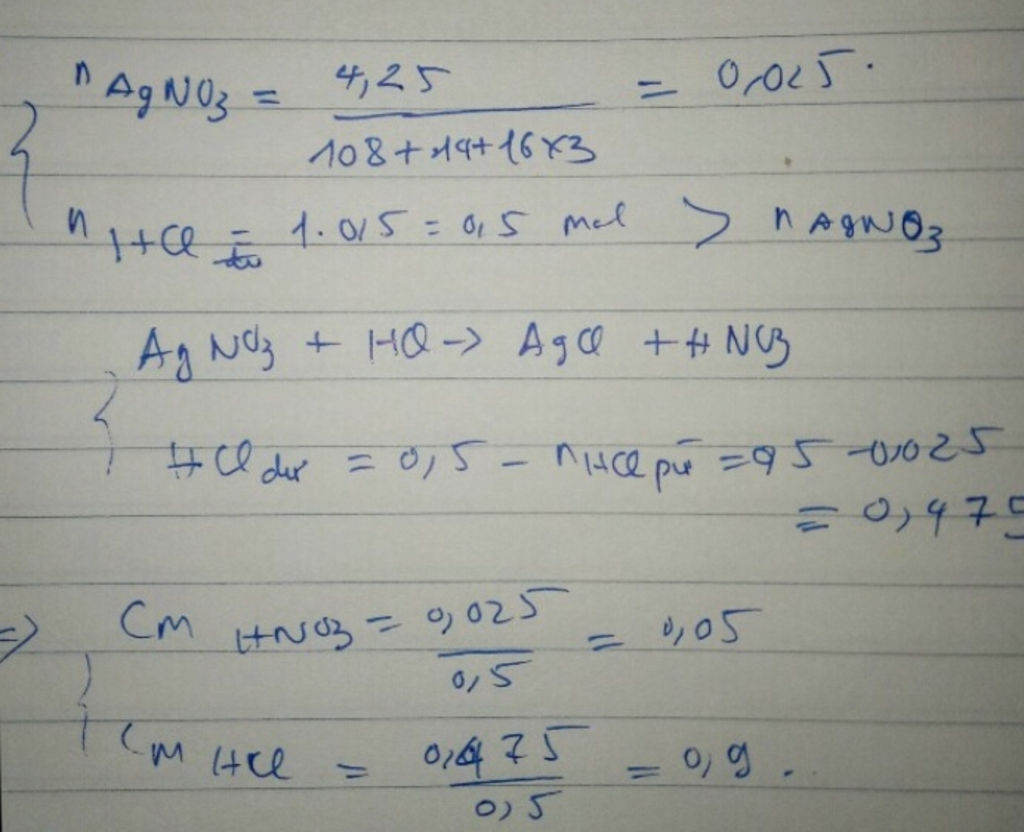 n AgNO3 = 4,25 / 108+14+16x3 = 0,025.
n HCl = 1.0,5 = 0,5 mol > n AgNO3
AgNO3 + HCl -> AgCl + HNO3
HCl dư = 0,5 - nHCl pư = 0,5 - 0,025
= 0,475
=> CM HNO3 = 0,025 / 0,5 = 0,05
CM HCl = 0,475 / 0,5 = 0,9..